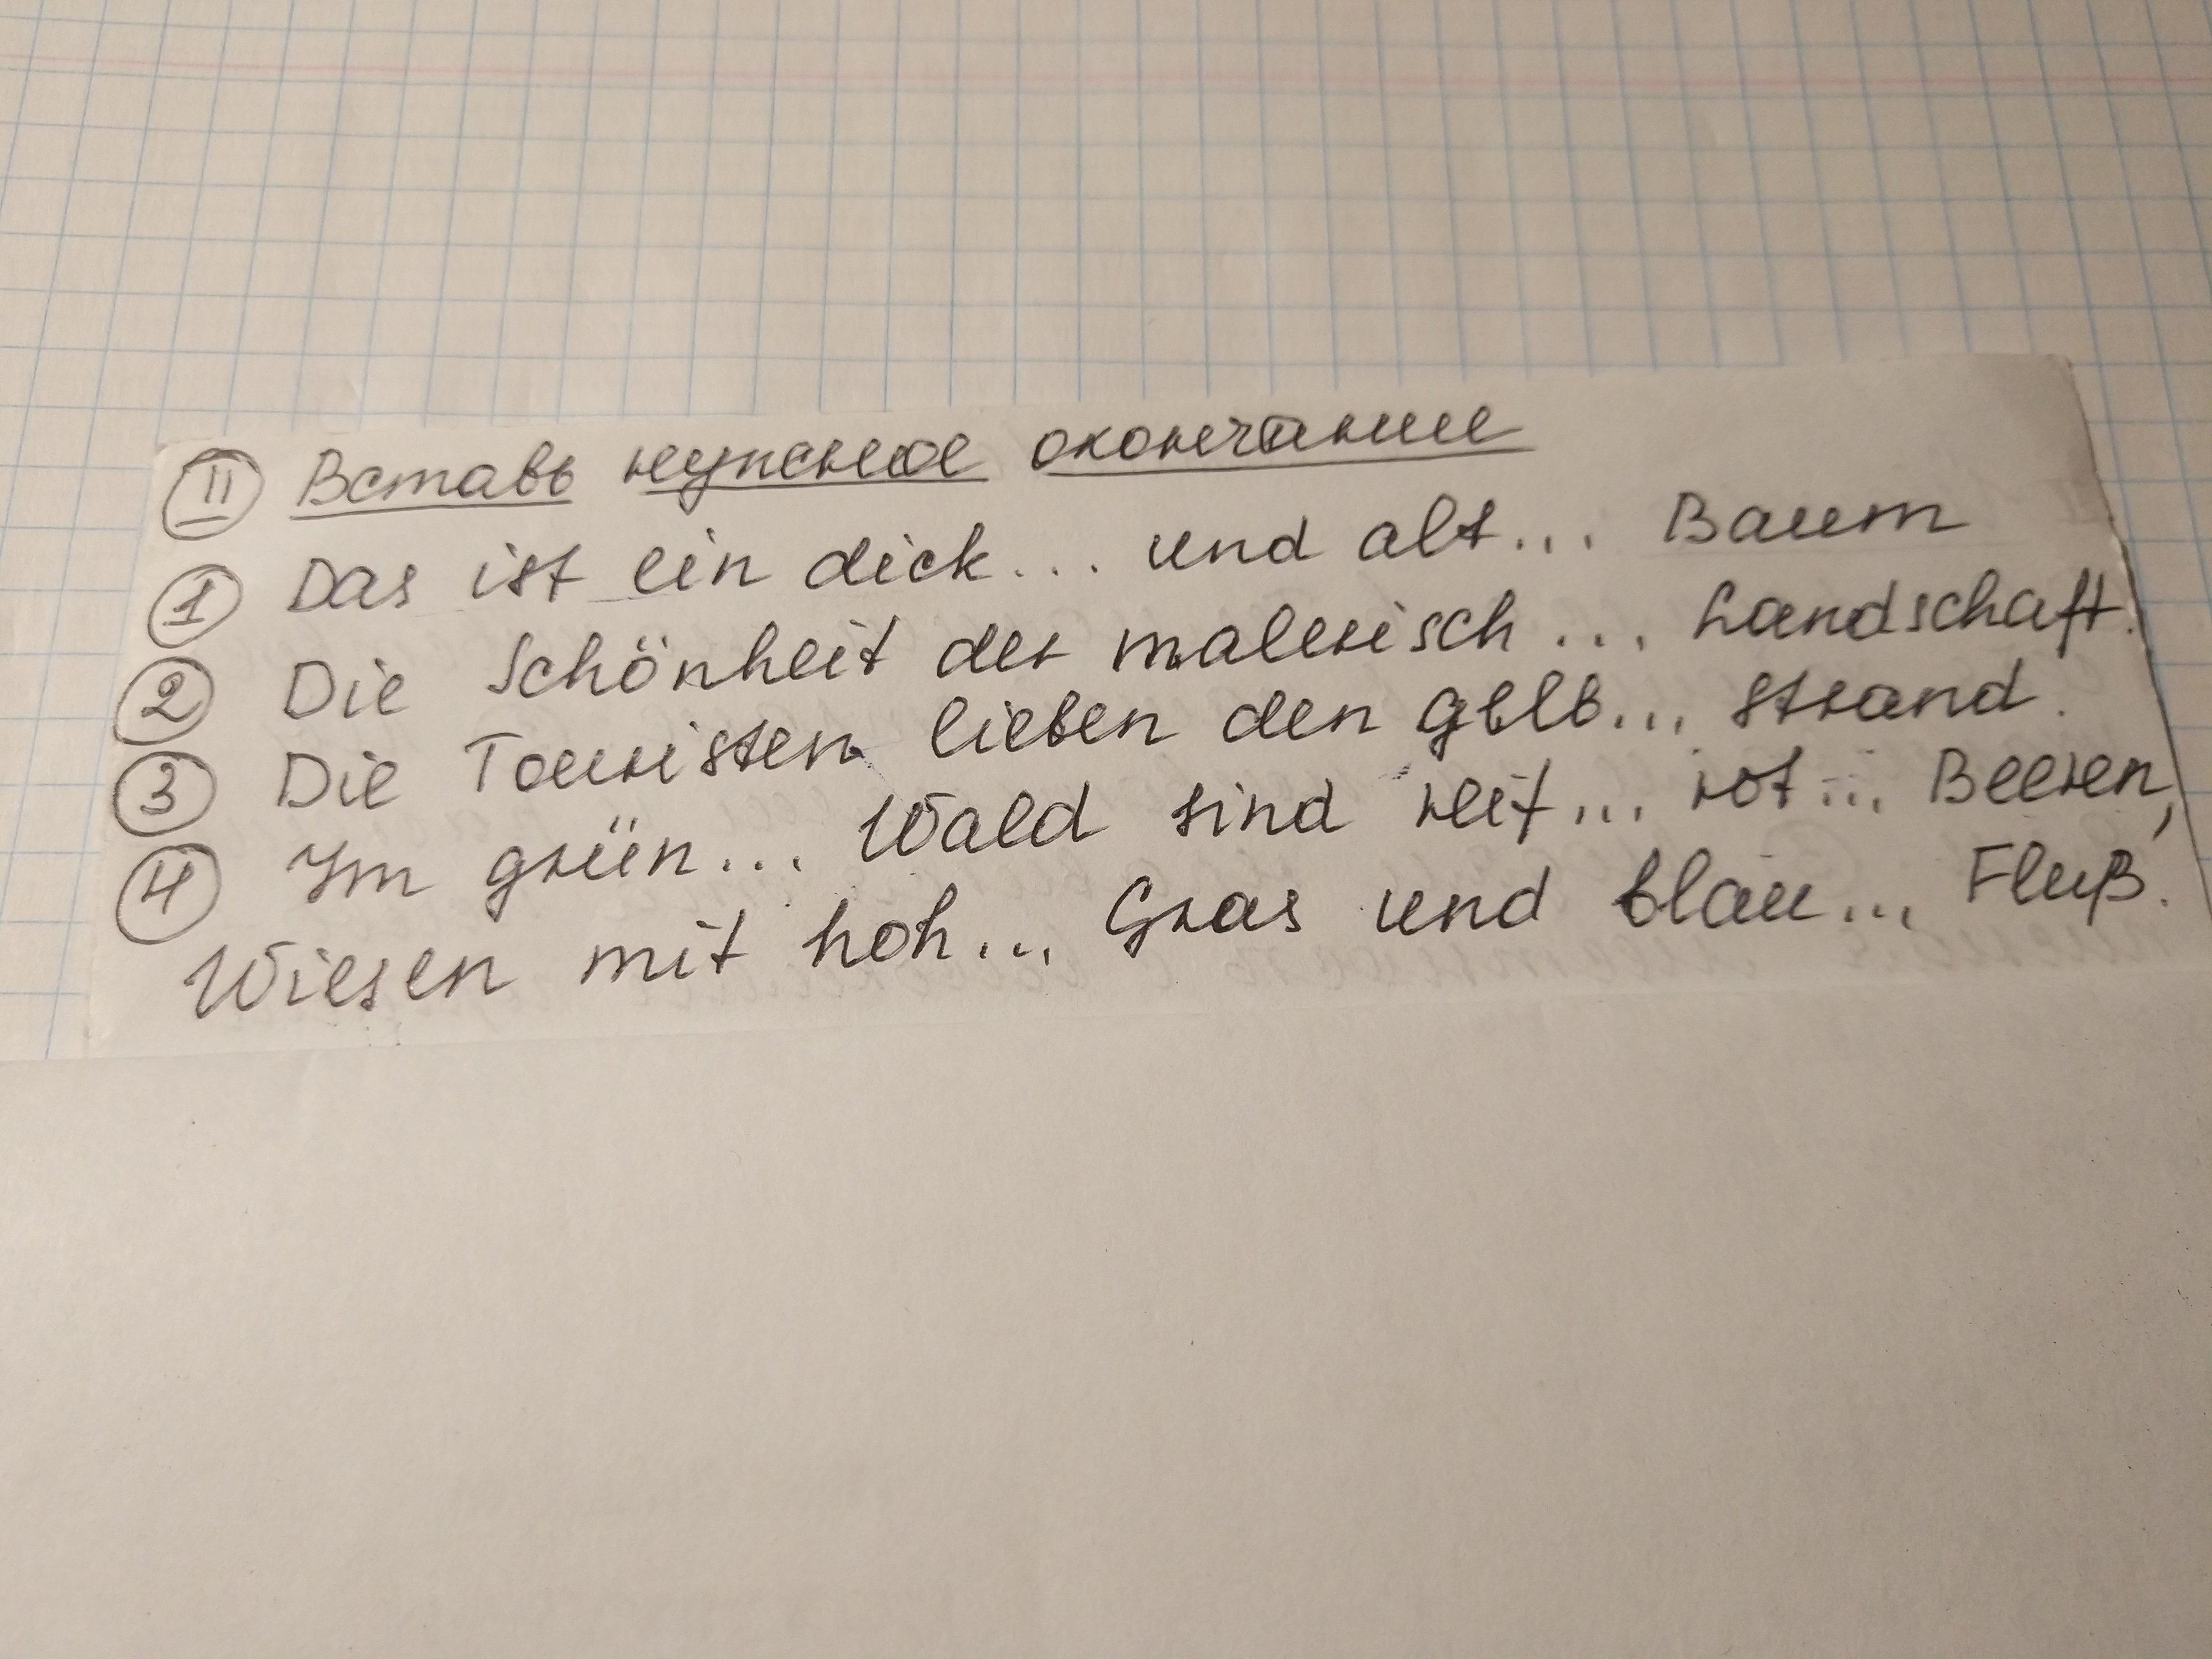 II Вставь нужное окончание
1 Das ist ein dick... und alt... Baum
2 Die Schönheit der malerisch... Landschaft.
3 Die Touristen lieben den gelb... Strand.
4 Im grün... Wald sind reif... rot... Beeren,
Wiesen mit hoh... Gras und blau... Fluß.